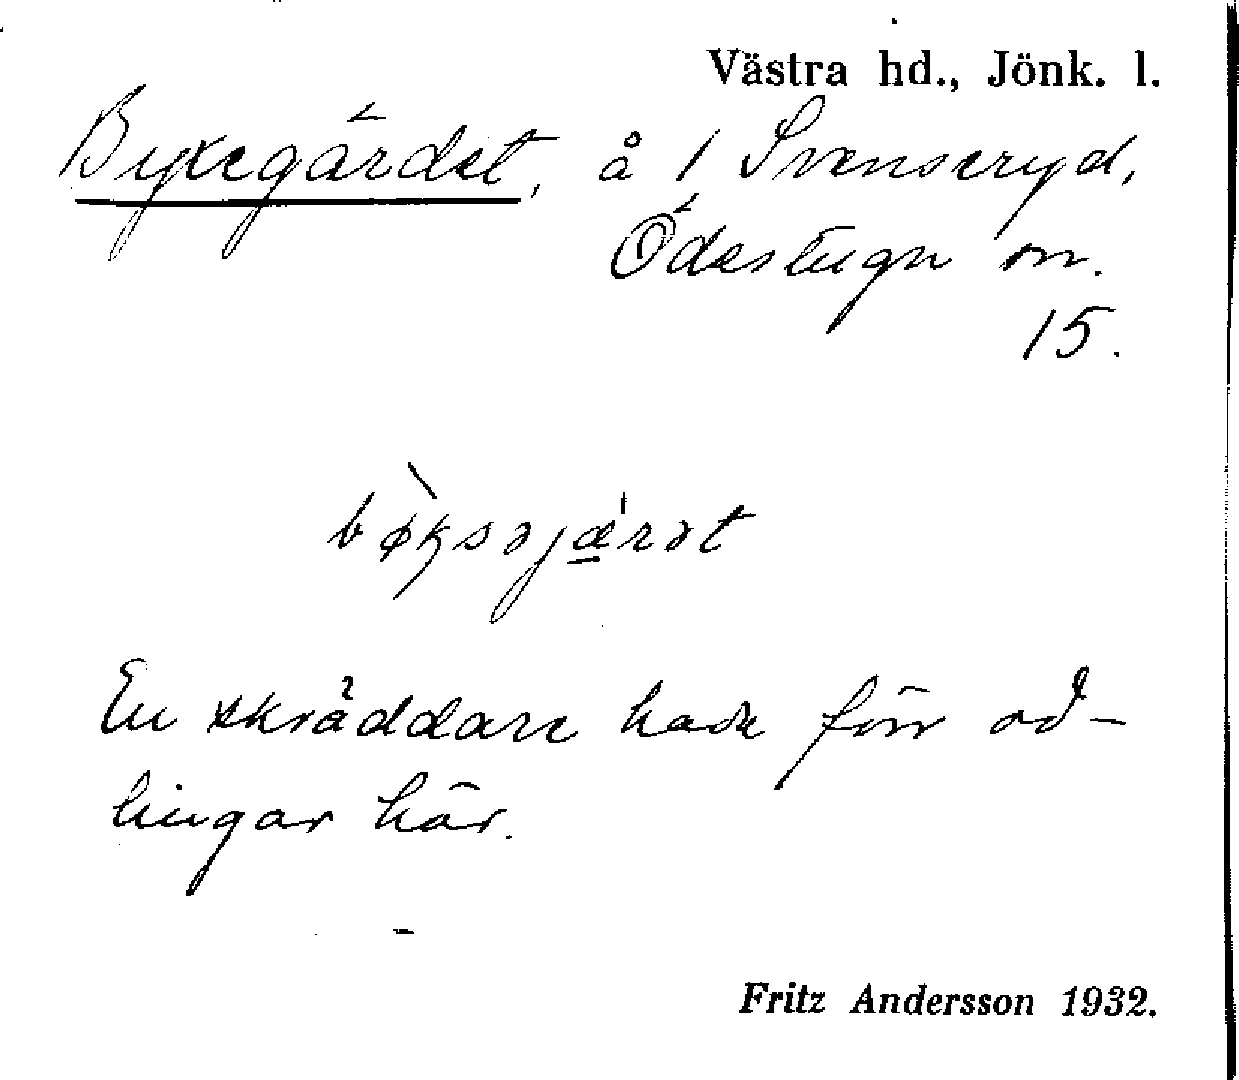 Västra hd., Jönk. l.
Byxegärdet, å 1 Svenseryd,
Ödestugu sn.
15.
bø̀ksəjæ̲rət
En skräddare hade förr od-
lingar här.
Fritz Andersson 1932.